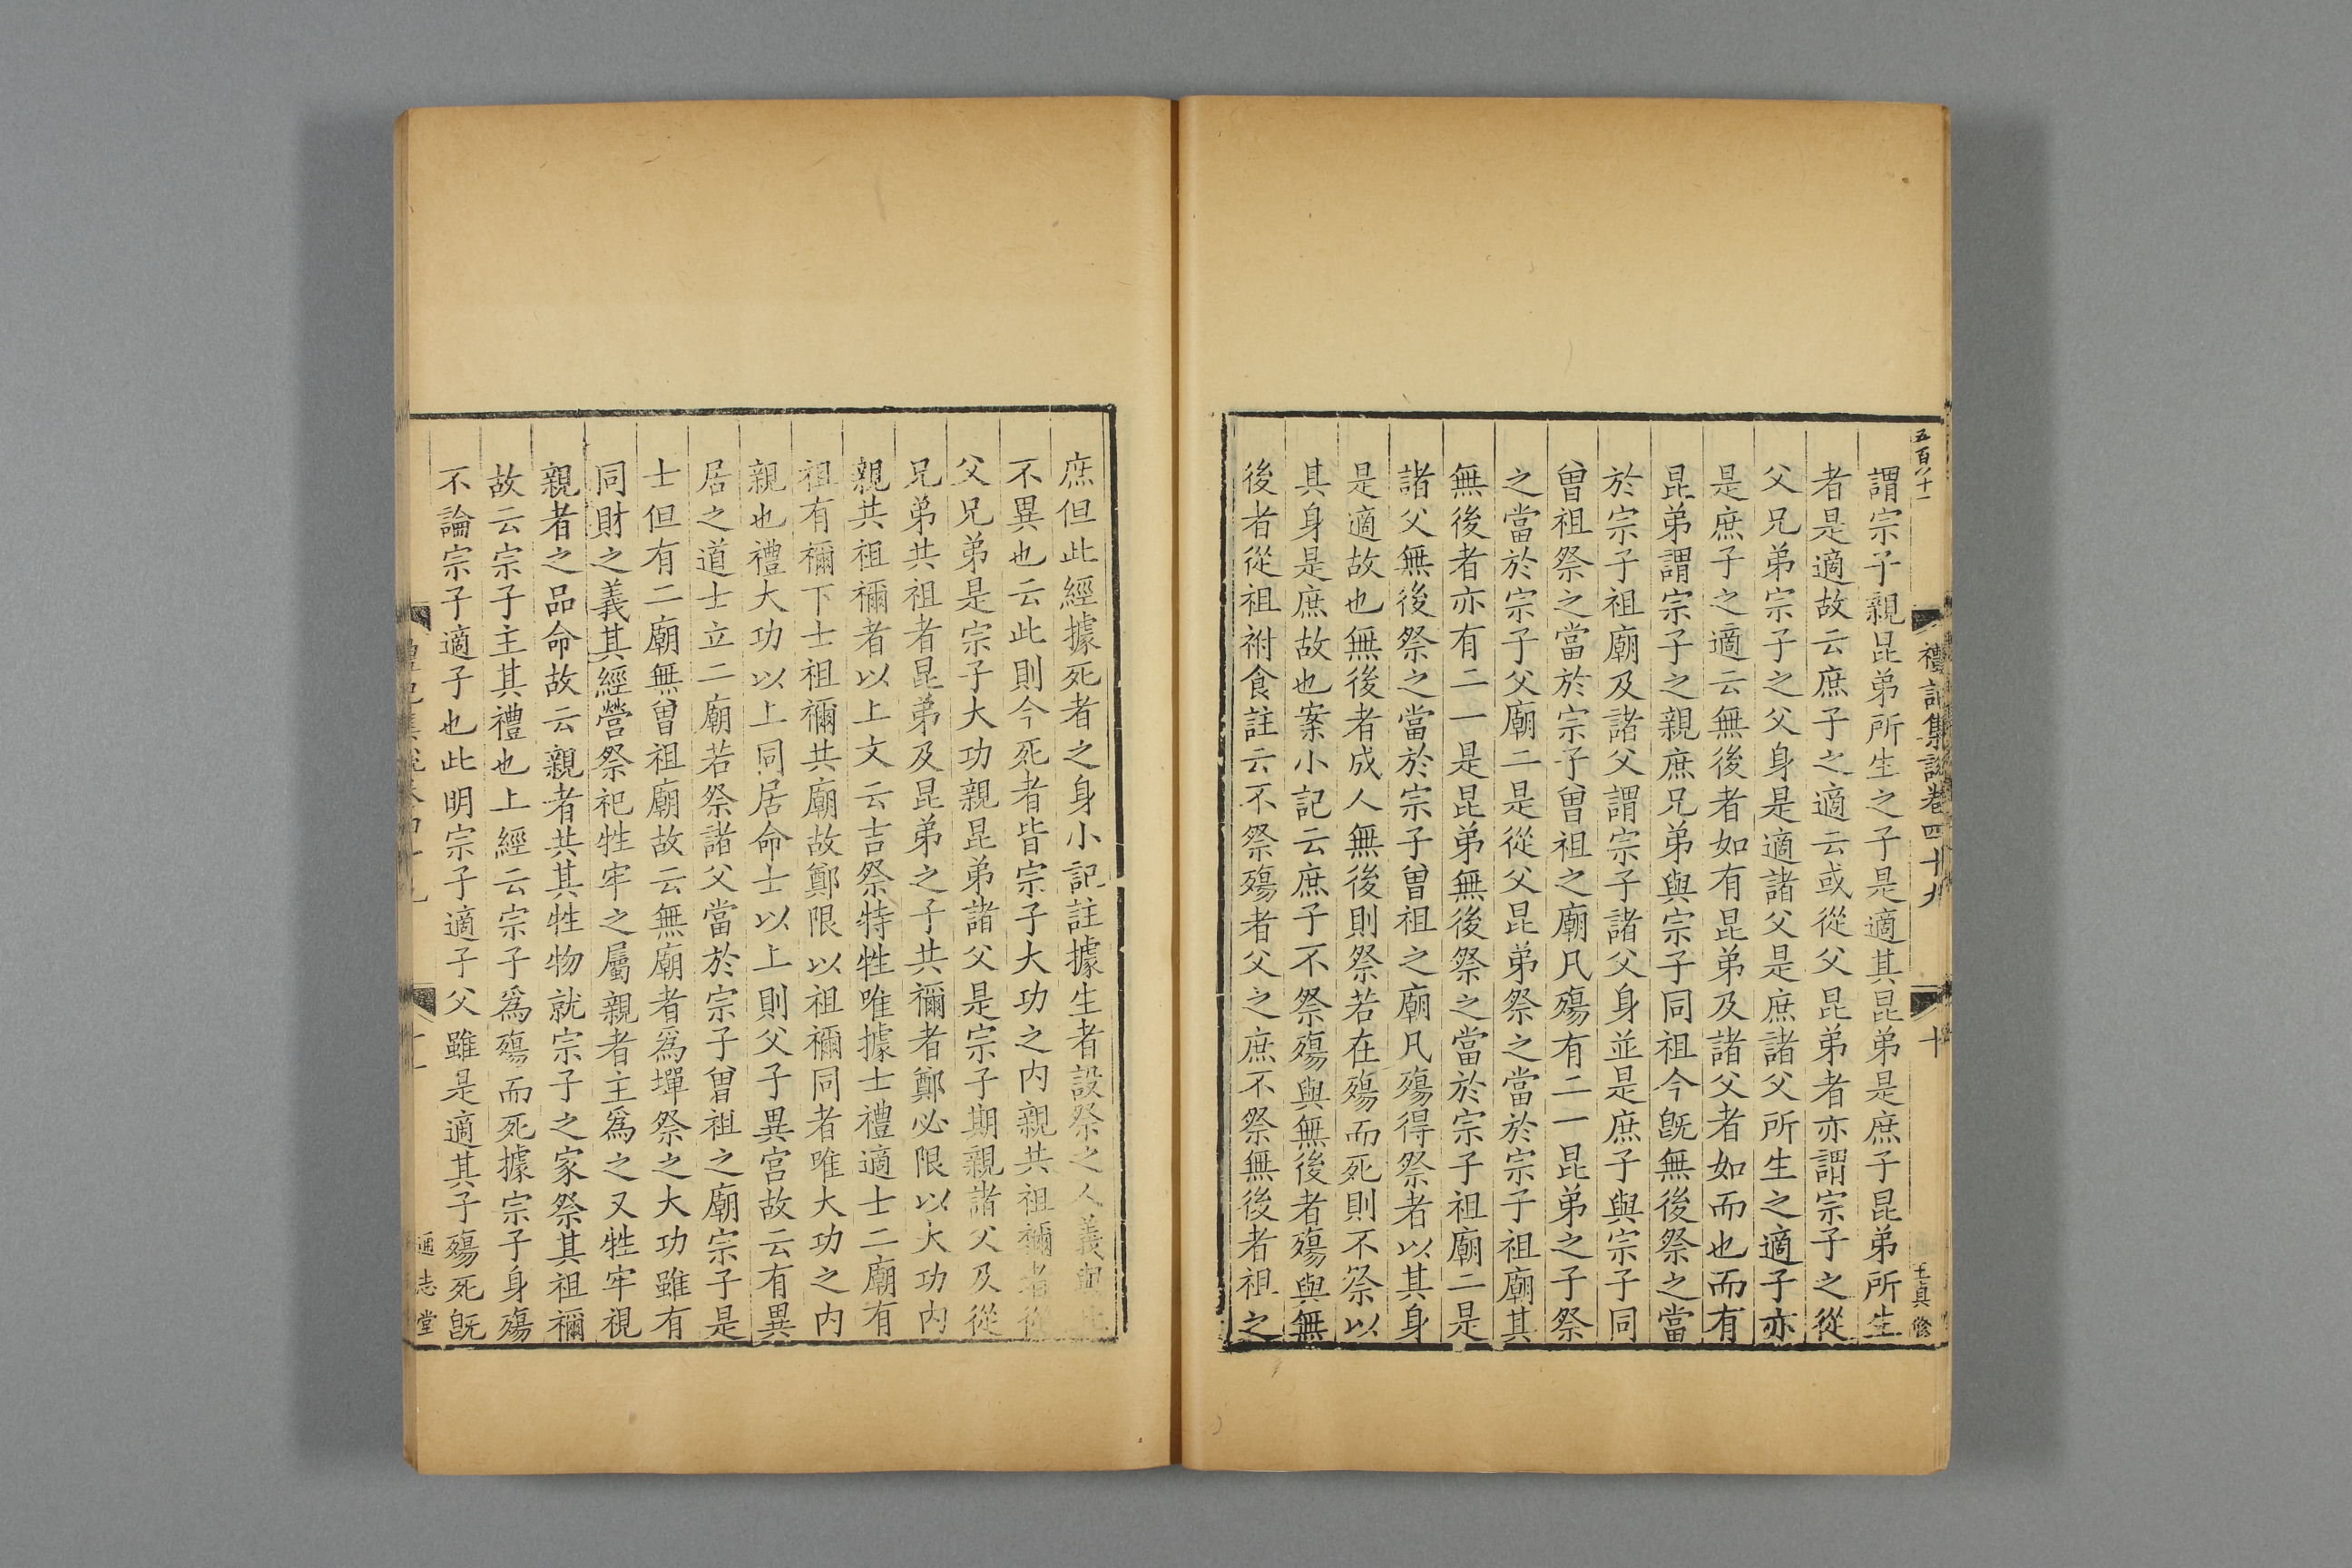 五百八十一
禮記集說卷四十九
十
王真修
謂宗子親昆弟所生之子是適其昆弟是庶子昆弟所生
者是適故云庶子之適云或從父昆弟者亦謂宗子之從
父兄弟宗子之父身是適諸父是庶諸父所生之適子亦
是庶子之適云無後者如有昆弟及諸父者如而也而有
昆弟謂宗子之親庶兄弟與宗子同祖今旣無後祭之當
於宗子祖廟及諸父謂宗子諸父身並是庶子與宗子同
曾祖祭之當於宗子曾祖之廟凡殤有二一昆弟之子祭
之當於宗子父廟二是從父昆弟祭之當於宗子祖廟其
無後者亦有二一是昆弟無後祭之當於宗子祖廟二是
諸父無後祭之當於宗子曾祖之廟凡殤得祭者以其身
是適故也無後者成人無後則祭若在殤而死則不祭以
其身是庶故也案小記云庶子不祭殤與無後者殤與無
後者從祖祔食註云不祭殤者父之庶不祭無後者祖之
庶但此經據死者之身小記註據生者設祭之人義與此
不異也云此則今死者皆宗子大功之內親共祖禰者從
父兄弟是宗子大功親昆弟諸父是宗子期親諸父及從
兄弟共祖者昆弟及昆弟之子共禰者鄭必限以大功內
親共祖禰者以上文云吉祭特牲唯據士禮適士二廟有
祖有禰下士祖禰共廟故鄭限以祖禰同者唯大功之內
親也禮大功以上同居命士以上則父子異宮故云有異
居之道士立二廟若祭諸父當於宗子曾祖之廟宗子是
士但有二廟無曾祖廟故云無廟者爲墠祭之大功雖有
同財之義其經營祭祀牲牢之屬親者主爲之又牲牢視
親者之品命故云親者共其牲物就宗子之家祭其祖禰
故云宗子主其禮也上經云宗子爲殤而死據宗子身殤
不論宗子適子也此明宗子適子父雖是適其子殤死旣
禮記集說卷四十九
十一
通志堂